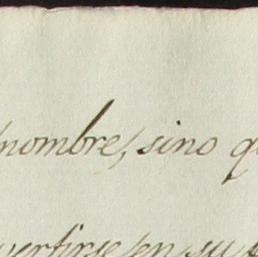 nombre, sino q
vertirse en su